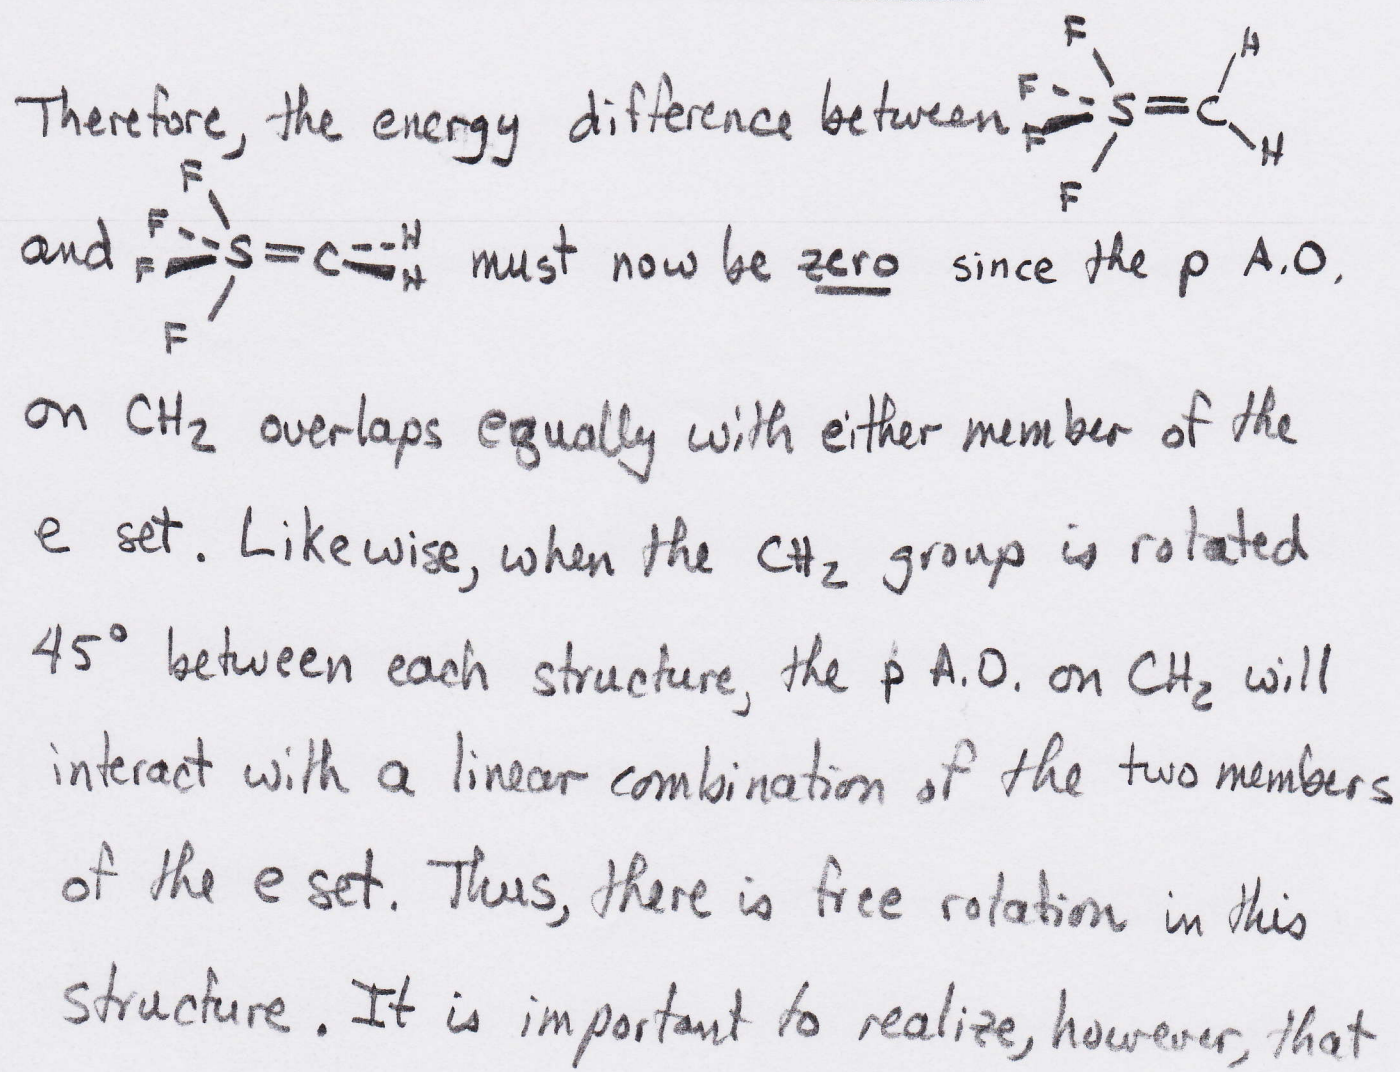 Therefore, the energy difference between F F F F S=C H H
and F F F F S=C H H must now be zero since the p A.O.
on CH₂ overlaps equally with either member of the
e set. Likewise, when the CH₂ group is rotated
45° between each structure, the p A.O. on CH₂ will
interact with a linear combination of the two members
of the e set. Thus, there is free rotation in this
structure. It is important to realize, however, that